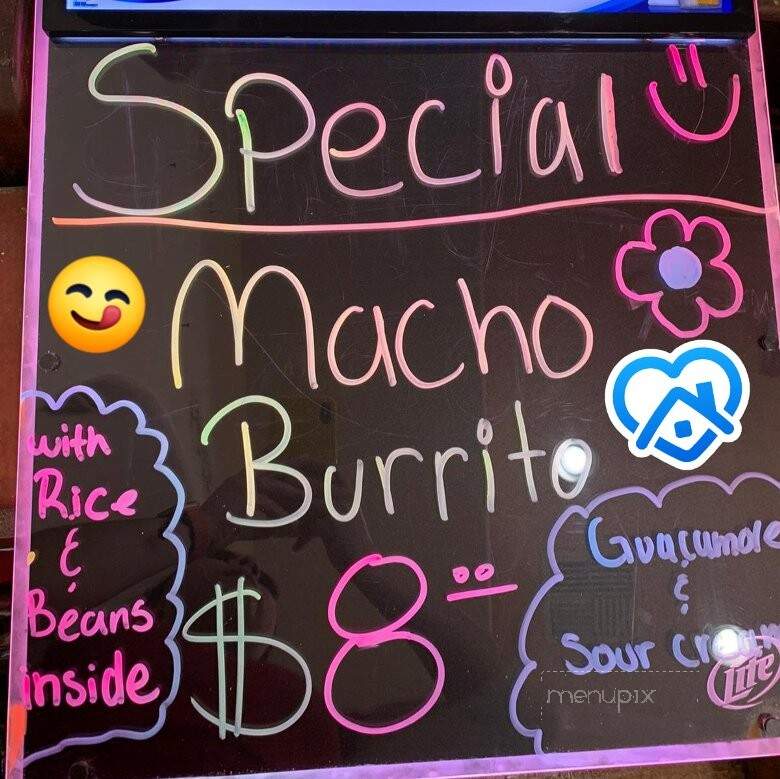 Special
Macho
Burrito
$8.00
with
Rice
&
Beans
inside
Guacamole
&
Sour cream
menupix
Lite